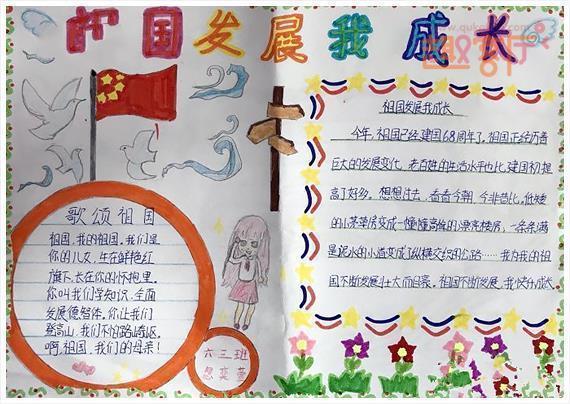 祖国发展我成长
歌颂祖国
祖国,我的祖国,我们是
你的儿女,生在鲜艳红
旗下,长在你的怀抱里,
你叫我们学知识,全面
发展德智体,你让我们
登高山,我们不怕路崎岖,
啊,祖国,我们的母亲!
六三班
祖国发展我成长
今年,祖国已经建国68周年了,祖国正经历着
巨大的发展变化,老百姓的生活水平也比建国初提
高了好多,想想过去,看看今朝,今非昔比,低矮
的小茅草房变成一幢幢高耸的漂亮楼房,一条条满
是泥水的小道变成了纵横交织的公路……我为我的祖
国不断发展壮大而自豪,祖国不断发展,我快乐成长